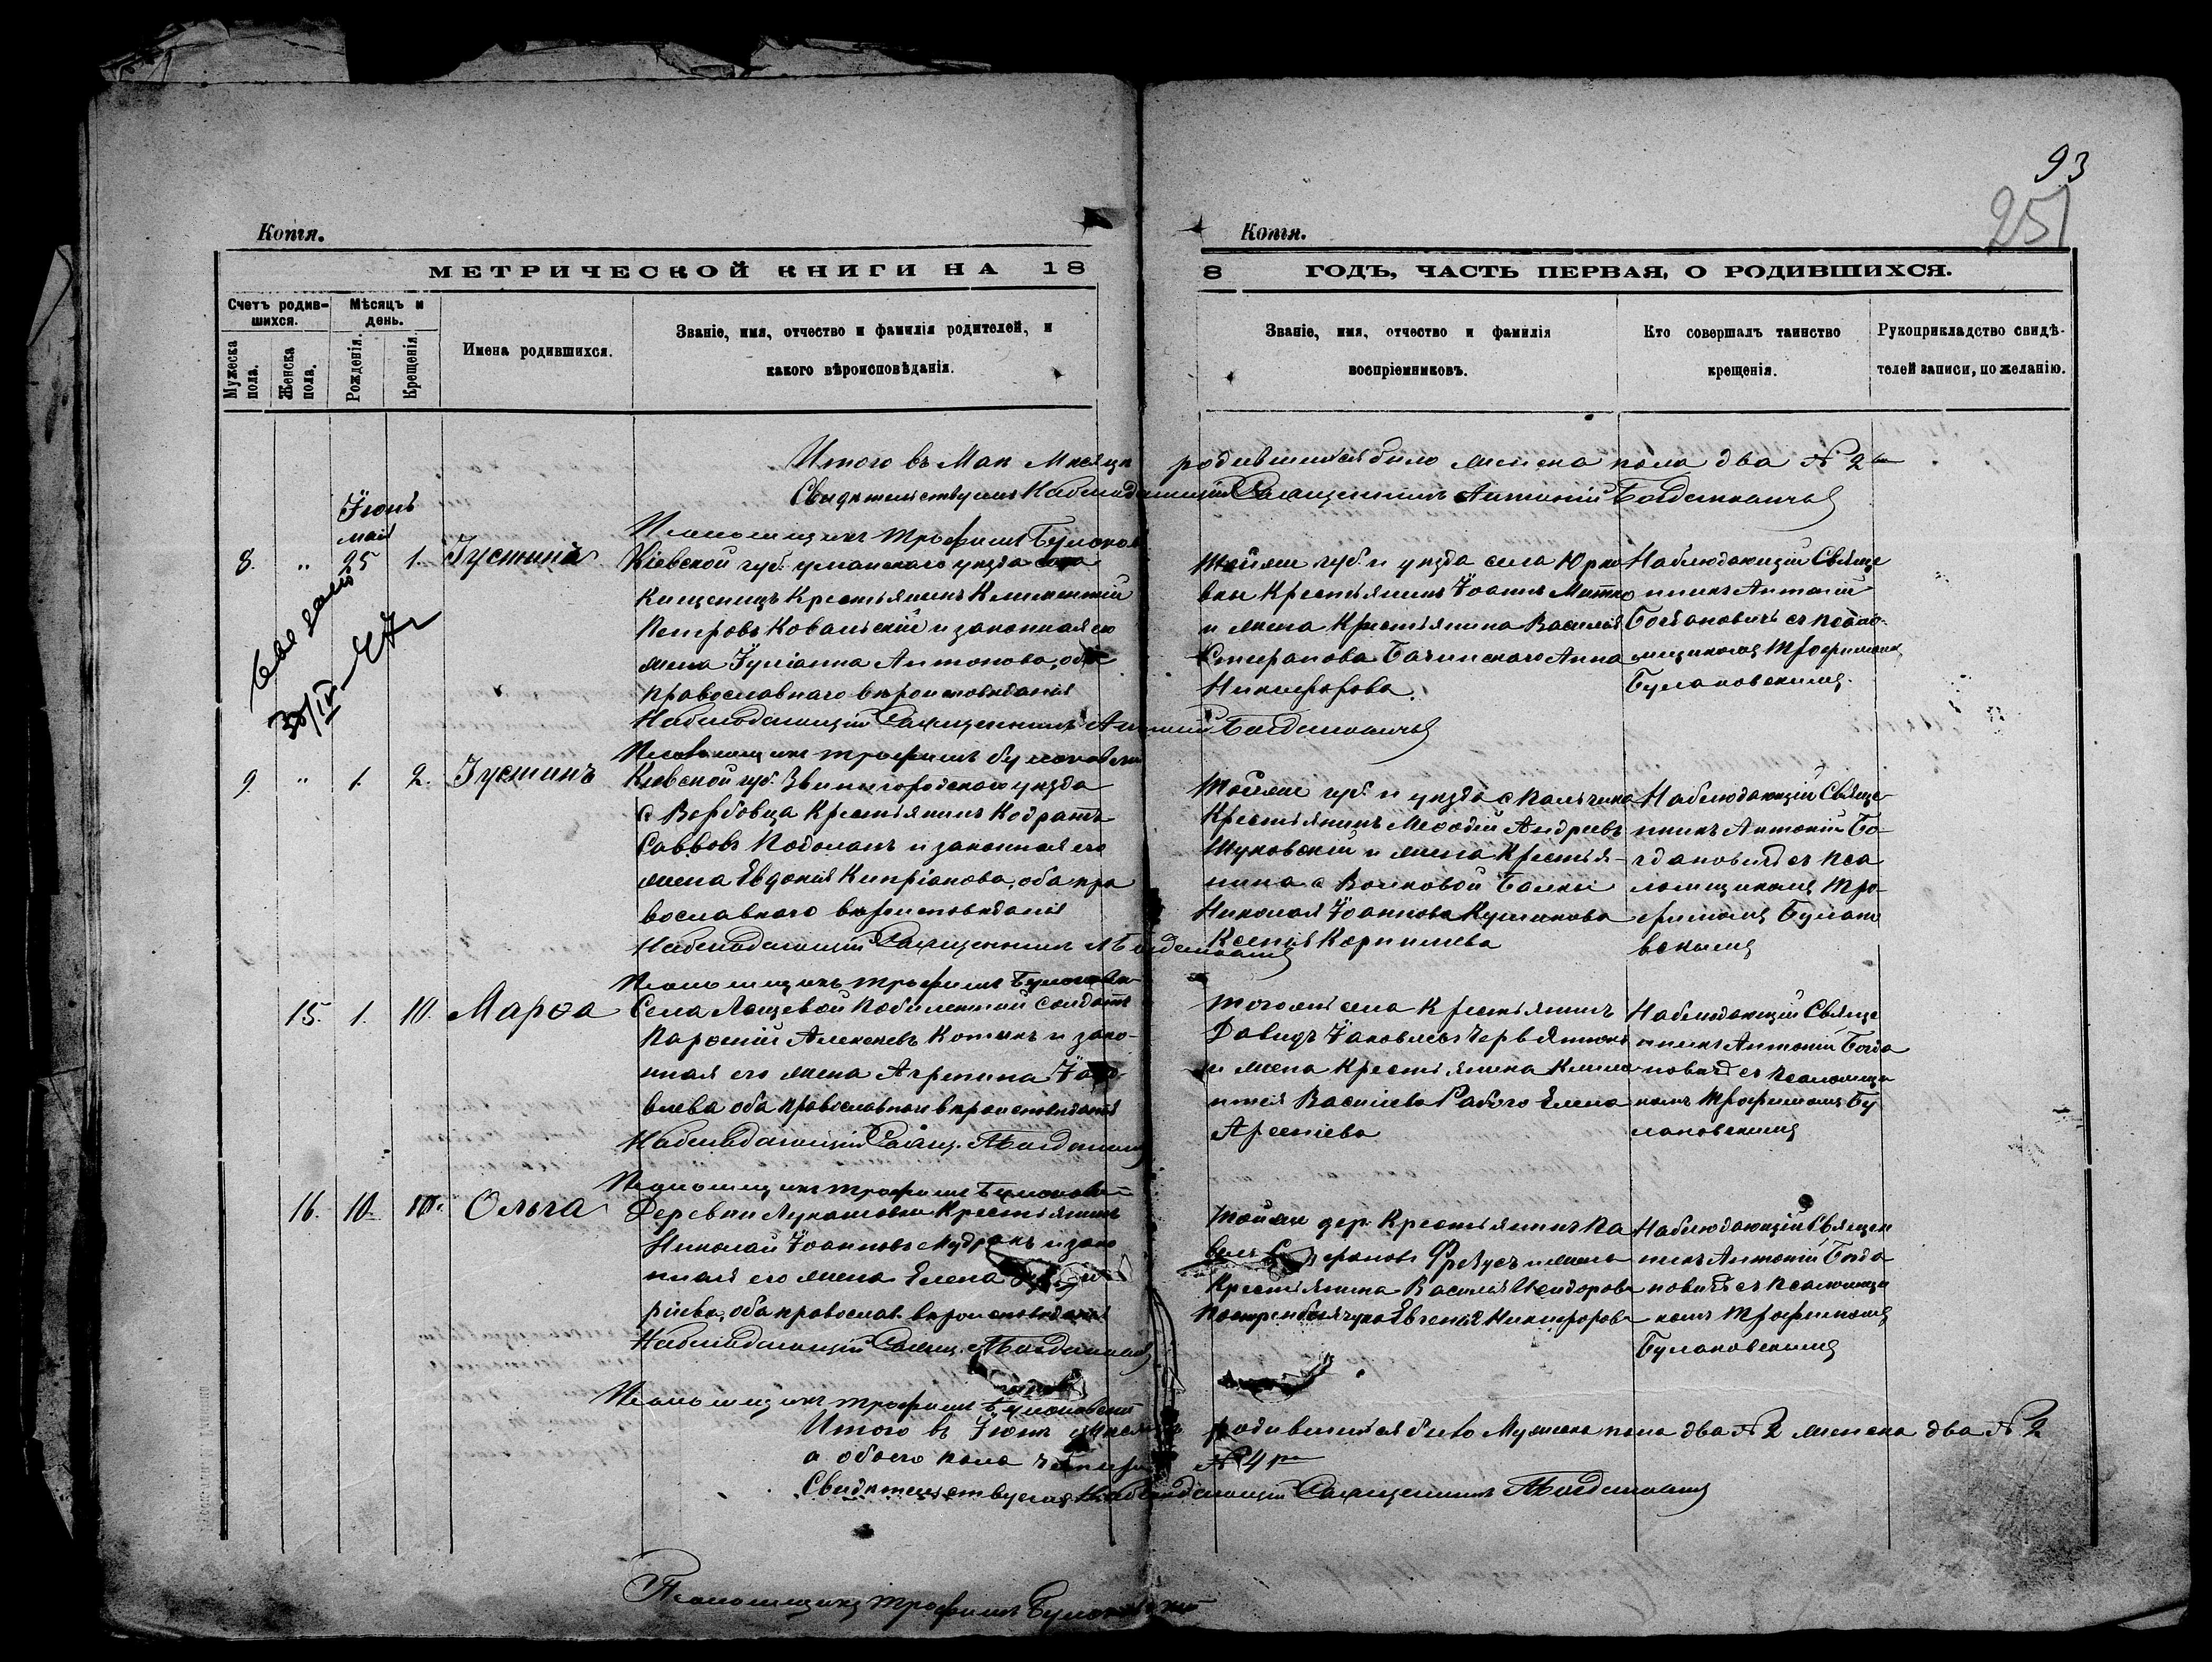 93
251
Копія.
Копія.
МЕТРИЧЕСКОЙ КНИГИ НА 18
8 ГОДЪ, ЧАСТЬ ПЕРВАЯ, О РОДИВШИХСЯ.
Счетъ родив-
шихся.
Мѣсяцъ и
день.
Мужеска
пола.
Женска
пола.
Рожденія.
Крещенія.
Имена родившихся.
Званіе, имя, отчество и фамилія родителей, и
какого вѣроисповѣданія.
Званіе, имя, отчество и фамилія
воспріемниковъ.
Кто совершалъ таинство
крещенія.
Рукоприкладство свидѣ-
телей записи, по желанію.
Итого въ Маѣ Мѣсяцѣ родившихся было женска пола два № 2
Свидѣтельствуемъ Наблюдающій Священникъ Антоній Богдановичъ
Псаломщикъ Трофимъ
Іюнь
май
8. " 25 1. Іустинъ
Кіевской губ. уманскаго уѣзда села
Кищенецъ Крестьянинъ Климентій
Петровъ Ковальскій и законная его
жена Іуліанна Антонова, оба
православнаго вѣроисповѣданія
Наблюдающій Священникъ Антоній Богдановичъ
Тойже губ. и уѣзда села Юрко
вки Крестьянинъ Іоаннъ
и жена Крестьянина Василія
Стефанова Анна
Никифорова.
Наблюдающій Священ
никъ Антоній
Богдановичъ съ псало
мщикомъ Трофимомъ
Булановскимъ
30/IV-47г
Псаломщикъ Трофимъ
9. " 1. 2. Іустинъ
Кіевской губ. Звенигородскаго уѣзда
с Вербовца Крестьянинъ Кодратъ
Саввовъ Подолянъ и законная его
жена Евдокія Кипріанова, оба пра
вославнаго вѣроисповѣданія
Наблюдающій Священникъ А Богдановичъ
Тойже губ. и уѣзда с
Крестьянинъ Меѳодій Андреевъ
Шуковскій и жена Крестья-
нина с Волковой Балки
Николая Іоаннова
Ксенія
Наблюдающій Священ-
никъ Антоній Бо-
гдановичъ съ пса
ломщикомъ Тро-
фимомъ Булано
вскимъ
Псаломщикъ Трофимъ
15. 1. 10. Марѳа
Села Лащевой Побилетный солдатъ
Алексѣевъ и зако-
нная его жена Агрепина Іако
влева оба православнаго вѣроисповѣданія
Наблюдающій Свящ. А Богдановичъ
Тогожъ села Крестьянинъ
Давидъ Іаковлевъ
и жена Крестьянина Климе
нтія Васильева Рабого Елена
Арсеніева
Наблюдающій Священ
никъ Антоній Богда
новичъ съ псаломщи
комъ Трофимомъ Бу
лановскимъ
Псаломщикъ Трофимъ
16. 10. 10. Ольга
Деревни Лукашовки Крестьянинъ
Николай Іоанновъ Мудракъ и зако
нная его жена Елена
ріева, оба православ. вѣроисповѣданія
Наблюдающій Свящ. А Богдановичъ
Тойже дер. Крестьянинъ Па
велъ и жена
Крестьянина Василія Исидорова
Евгенія Никифорова
Наблюдающій Священ
никъ Антоній Богда
новичъ съ псаломщи
комъ Трофимомъ
Булановскимъ
Псаломщикъ Трофимъ Булановскій
Итого въ Іюнѣ Мѣсяцѣ родившихся было Мужеска пола два № 2 женска два № 2
а обоего пола четыре № 4
Свидѣтельствуемъ Наблюдающій Священникъ А Богдановичъ
Псаломщикъ Трофимъ Булановскій